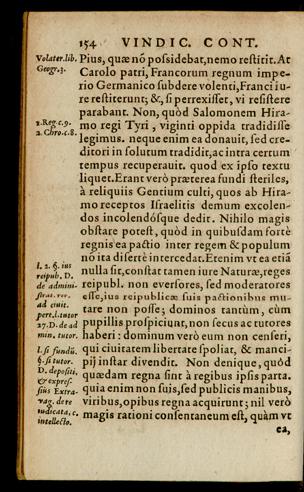 154 VINDIC. CONT.
Volater. lib.
Geogr. 3.
Pius, quæ nõ possidebat, nemo restitit. At
Carolo patri, Francorum regnum impe-
rio Germanico subdere volenti, Franci iu-
re restiterunt; &, si perrexisset, vi resistere
parabant. Non, quòd Salomonem Hira-
2. Reg. c. 9.
2. Chro. c. 8.
mo regi Tyri, viginti oppida tradidisse
legimus. neque enim ea donauit, sed cre-
ditori in solutum tradidit, ac intra certum
tempus recuperauit. quod ex ipso textu
liquet. Erant verò præterea fundi steriles,
à reliquiis Gentium culti, quos ab Hira-
mo receptos Israelitis demum excolen-
dos incolendósque dedit. Nihilo magis
obstare potest, quòd in quibusdam fortè
regnis ea pactio inter regem & populum
nõ ita disertè intercedat. Etenim vt ea etiã
nulla sit, constat tamen iure Naturæ, reges
reipubl. non euersores, sed moderatores
esse, ius reipublicæ suis pactionibus mu-
tare non posse; dominos tantùm, cùm
pupillis prospiciunt, non secus ac tutores
haberi: dominum verò eum non censeri,
qui ciuitatem libertate spoliat, & manci-
pij instar diuendit. Non denique, quòd
quædam regna sint à regibus ipsis parta.
quia enim non suis, sed publicis manibus,
viribus, opibus regna acquirunt; nil verò
magis rationi consentaneum est, quàm vt
ea,
l. 2. §. ius
reipub. D.
de admini-
strat. rer.
ad ciuit.
pert. l. tutor
27. D. de ad
min. tutor.
l. si fundũ.
§. si tutor.
D. depositi.
& expres-
siùs Extra-
uag. de re
iudicata, c.
intellecto.